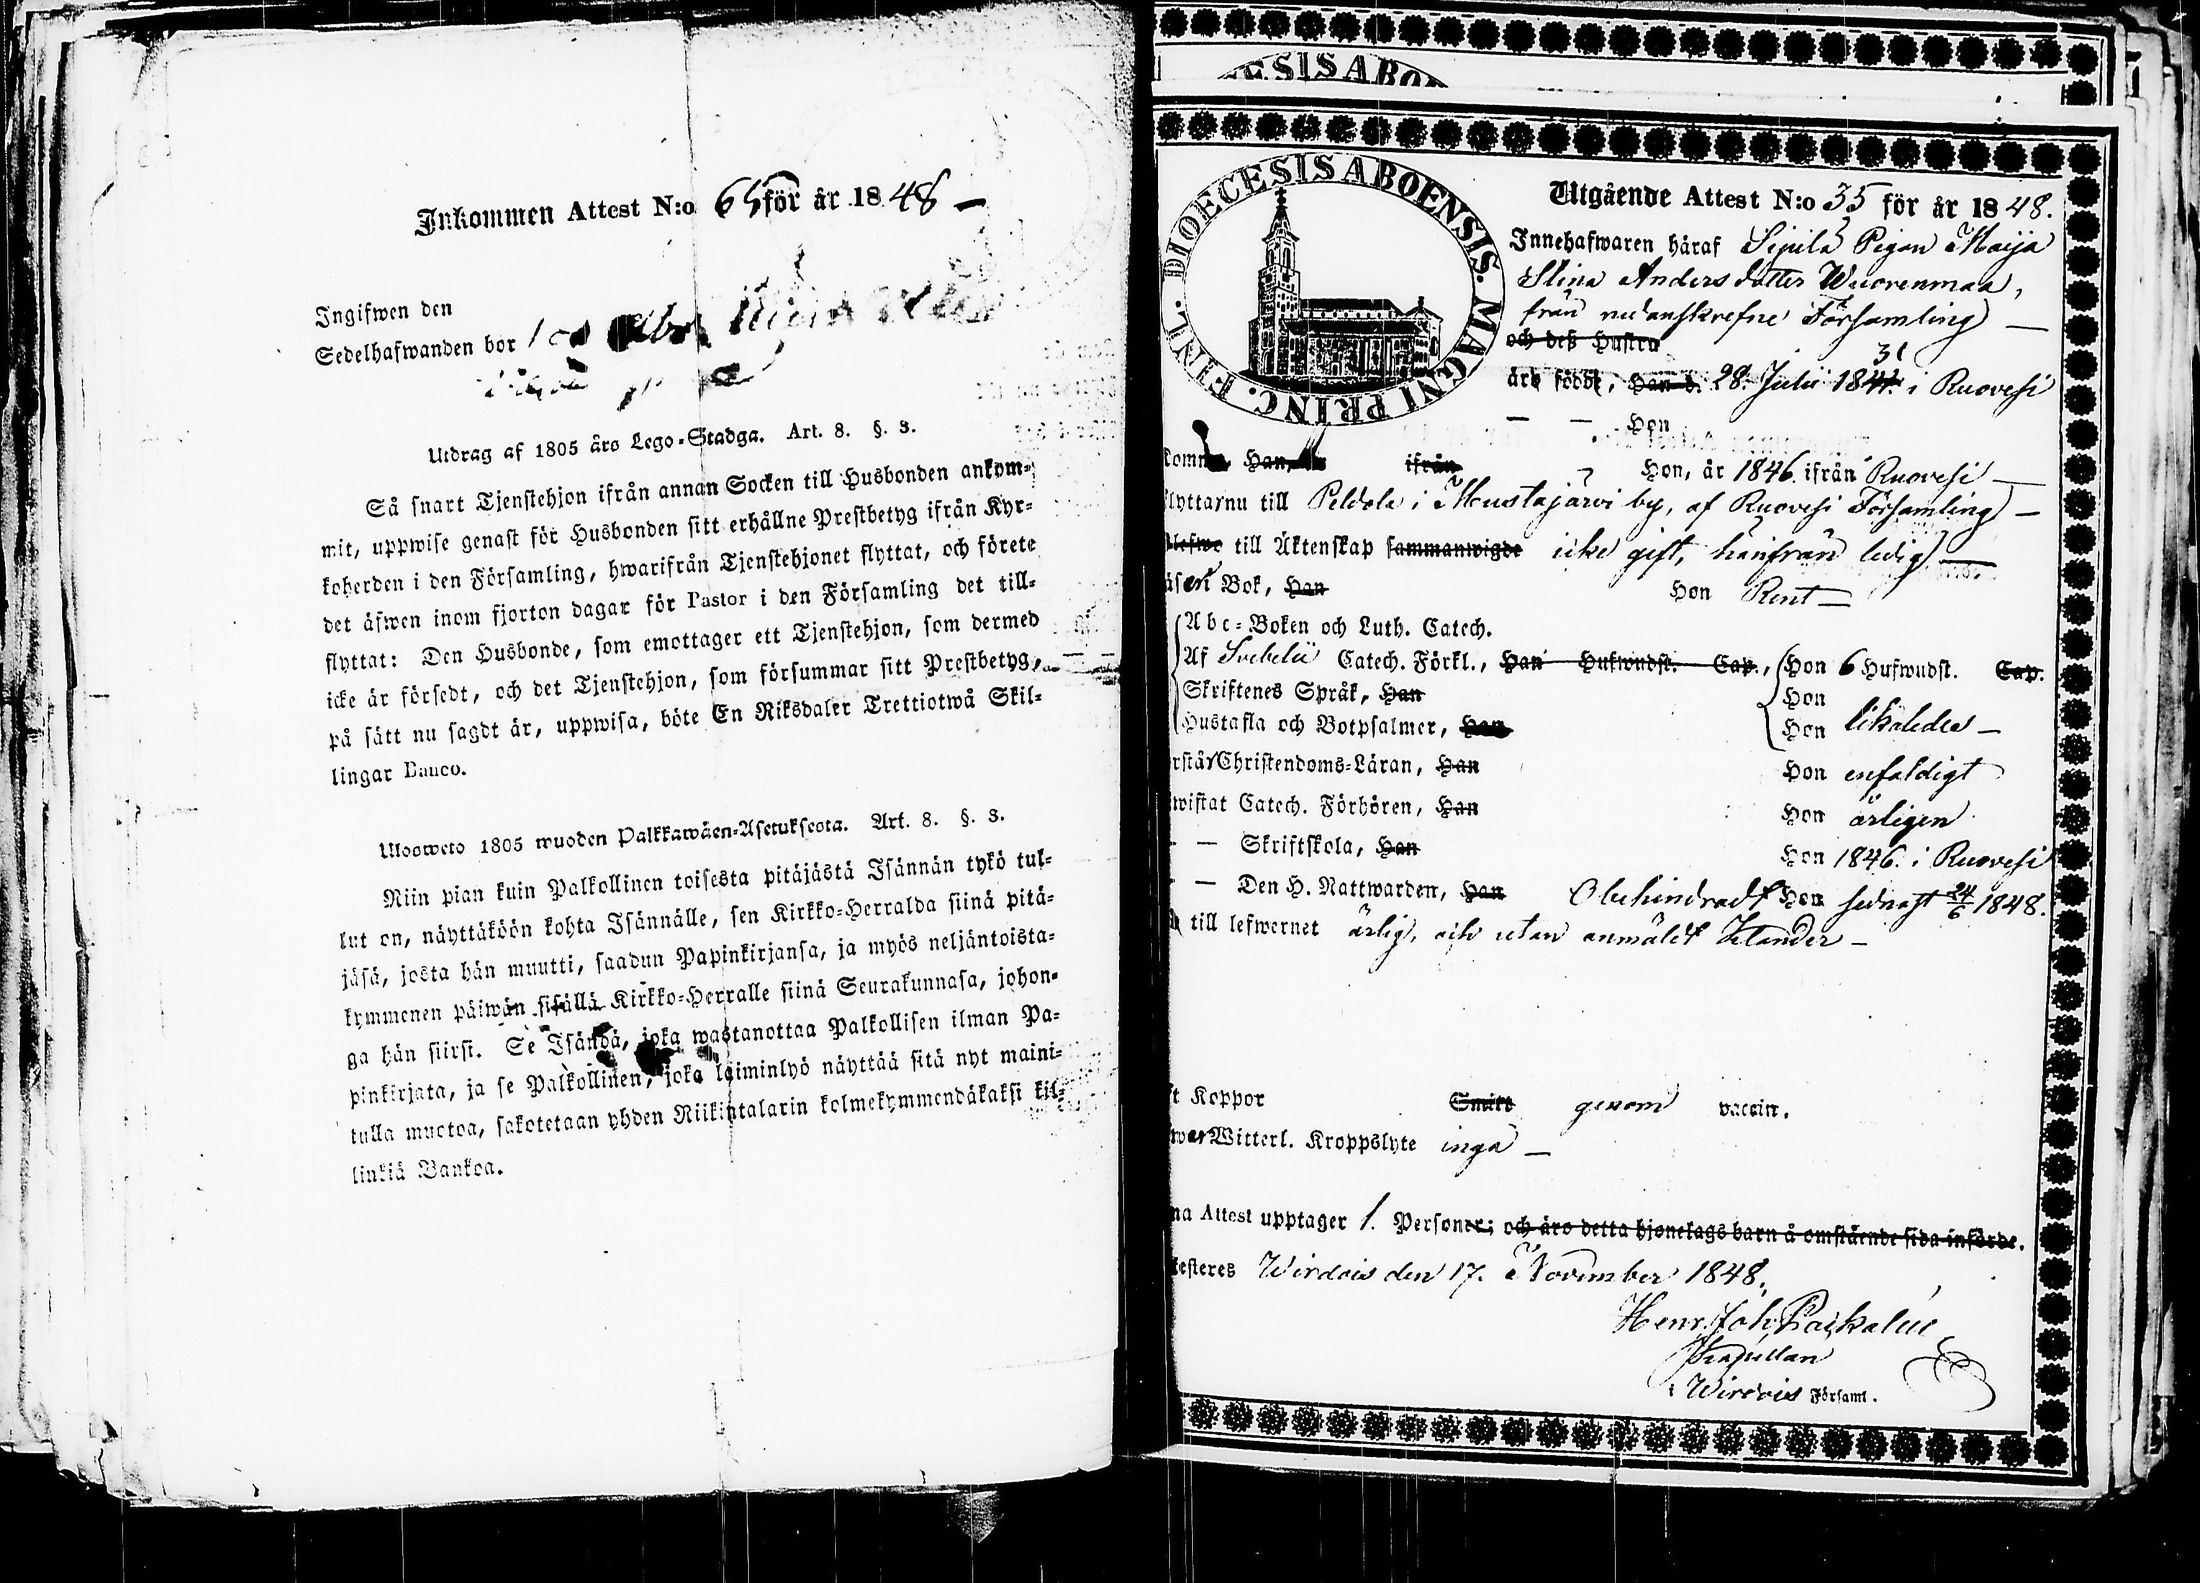 Inkommen Attest N:o 65 för år 1848 —
Ingifwen den
Sedelhafwanden bor
Utdrag af 1805 års Lego-Stadga. Art. 8. §. 3.
Så snart Tjenstehjon ifrån annan Socken till Husbonden ankom-
mit, uppwise genast för Husbonden sitt erhållne Prestbetyg ifrån Kyr-
koherden i den Församling, hwarifrån Tjenstehjonet flyttat, och förete
det äfwen inom fjorton dagar för Pastor i den Församling det till-
flyttat: Den Husbonde, som emottager ett Tjenstehjon, som dermed
icke är försedt, och det Tjenstehjon, som försummar sitt Prestbetyg,
på sätt nu sagdt är, uppwisa, böte En Riksdaler Trettiotwå Skil-
lingar Banco.
Ulosweto 1805 wuoden Palkkawäen-Asetuksesta. Art. 8. §. 3.
Niin pian kuin Palkollinen toisesta pitäjästä Isännän tykö tul-
lut on, näyttäköön kohta Isännälle, sen Kirkko-Herralda siinä pitä-
jäsä, josta hän muutti, saadun Papinkirjansa, ja myös neljäntoista-
kymmenen päiwän sisällä Kirkko-Herralle siinä Seurakunnasa, johon-
ga hän siirsi. Se Isändä, joka wastanottaa Palkollisen ilman Pa-
pinkirjata, ja se Palkollinen, joka laiminlyö näyttää sitä nyt maini-
tulla muotoa, sakotetaan yhden Riikintalarin kolmekymmendäkaksi kil-
linkiä Bankoa.
DIOECESIS ABOENSIS. MAGNI PRINC. FINL.
Utgående Attest N:o 35 för år 1848.
Innehafwaren häraf Sipilä Pigan Maija
Stina Anders dotter Wuorenmaa,
från nedanskrefne Församling —
och deß Hustru
31
äro födde, Han d. 28. Julii 1841. i Ruovesi
— — Hon
Han, ifrån Hon, år 1846. ifrån Ruovesi —
flytta nu till Peldola i Mustajärvi by, af Ruovesi Församling —
till Äktenskap sammanwigde icke gift, härifrån ledig —
Bok, Han Hon Rent —
Abc-Boken och Luth. Catech.
Af Svebelii Catech. Förkl., Han Hufwudst. Cap., Hon 6 Hufwudst. Cap.
Skriftenes Språk, Han Hon
Hustafla och Botpsalmer, Han Hon likaledes —
rstår Christendoms-Läran, Han Hon enfaldigt
wistat Catech. Förhören, Han Hon årligen
— Skriftskola, Han Hon 1846. i Ruovesi
— Den H. Nattwarden, Han Obehindradt Hon sednast 24/6 1848.
till lefwernet ärlig, och utan anmäldt klander —
t Koppor Smitt genom vaccin.
Witterl. Kroppslyte inga —
na Attest upptager 1. Personer; och äro detta hjonelags barn å omstående sida införde.
testeres Wirdois den 17. November 1848.
Henr. Joh.
Kapellan
i Wirdois Församl.
ESIS ABOE